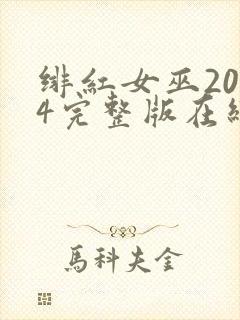 绯红女巫20
4完整版在线
馬科夫金